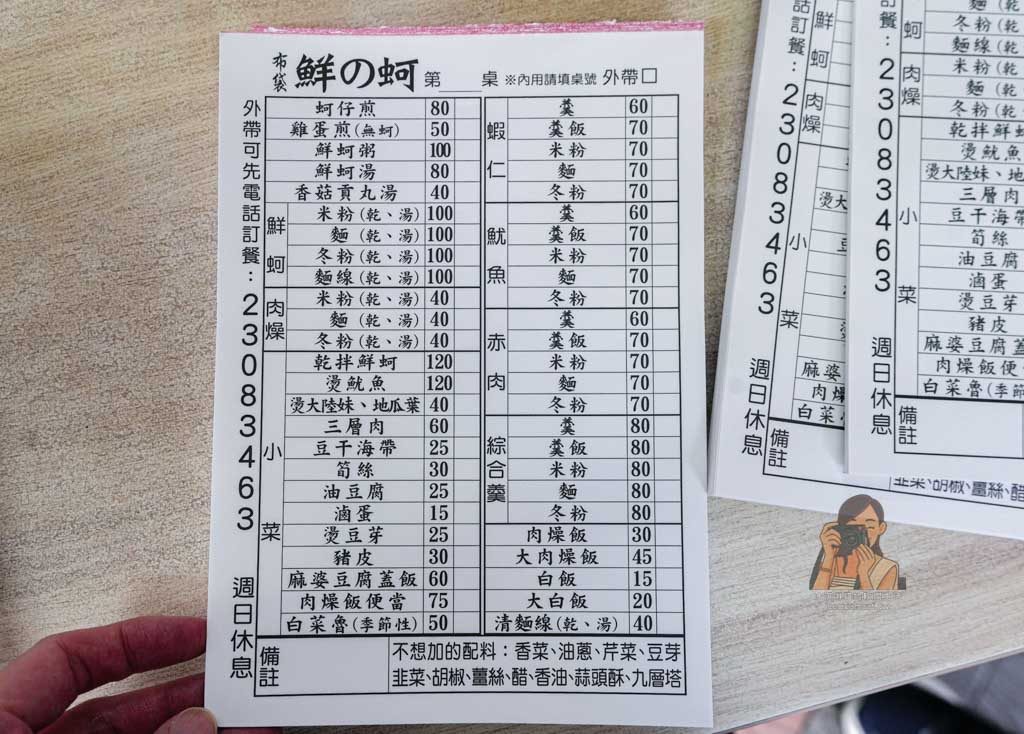 布袋 鮮の蚵 第____桌 ※內用請填桌號 外帶□
外帶可先電話訂餐：23083463 週日休息
蚵仔煎 80
雞蛋煎(無蚵) 50
鮮蚵粥 100
鮮蚵湯 80
香菇貢丸湯 40
鮮蚵
米粉(乾、湯) 100
麵(乾、湯) 100
冬粉(乾、湯) 100
麵線(乾、湯) 100
肉燥
米粉(乾、湯) 40
麵(乾、湯) 40
冬粉(乾、湯) 40
小菜
乾拌鮮蚵 120
燙魷魚 120
燙大陸妹、地瓜葉 40
三層肉 60
豆干海帶 25
筍絲 30
油豆腐 25
滷蛋 15
燙豆芽 25
豬皮 30
麻婆豆腐蓋飯 60
肉燥飯便當 75
白菜魯(季節性) 50
蝦仁
羹 60
羹飯 70
米粉 70
麵 70
冬粉 70
魷魚
羹 60
羹飯 70
米粉 70
麵 70
冬粉 70
赤肉
羹 60
羹飯 70
米粉 70
麵 70
冬粉 70
綜合羹
羹 80
羹飯 80
米粉 80
麵 80
冬粉 80
肉燥飯 30
大肉燥飯 45
白飯 15
大白飯 20
清麵線(乾、湯) 40
備註
不想加的配料：香菜、油蔥、芹菜、豆芽
韭菜、胡椒、薑絲、醋、香油、蒜頭酥、九層塔
訂餐：23083463 週日休息
鮮蚵
肉燥
小菜
燙大
麻婆
肉燥
白菜
備註
韭菜、胡椒、薑絲、醋
訂餐：23083463 週日休息
蚵
麵(乾
冬粉(乾
麵線(乾
肉燥
米粉(乾
麵(乾
冬粉(乾
小菜
乾拌鮮
燙魷魚
燙大陸妹、地
三層肉
豆干海帶
筍絲
油豆腐
滷蛋
燙豆芽
豬皮
麻婆豆腐蓋
肉燥飯便
白菜魯(季節
備註